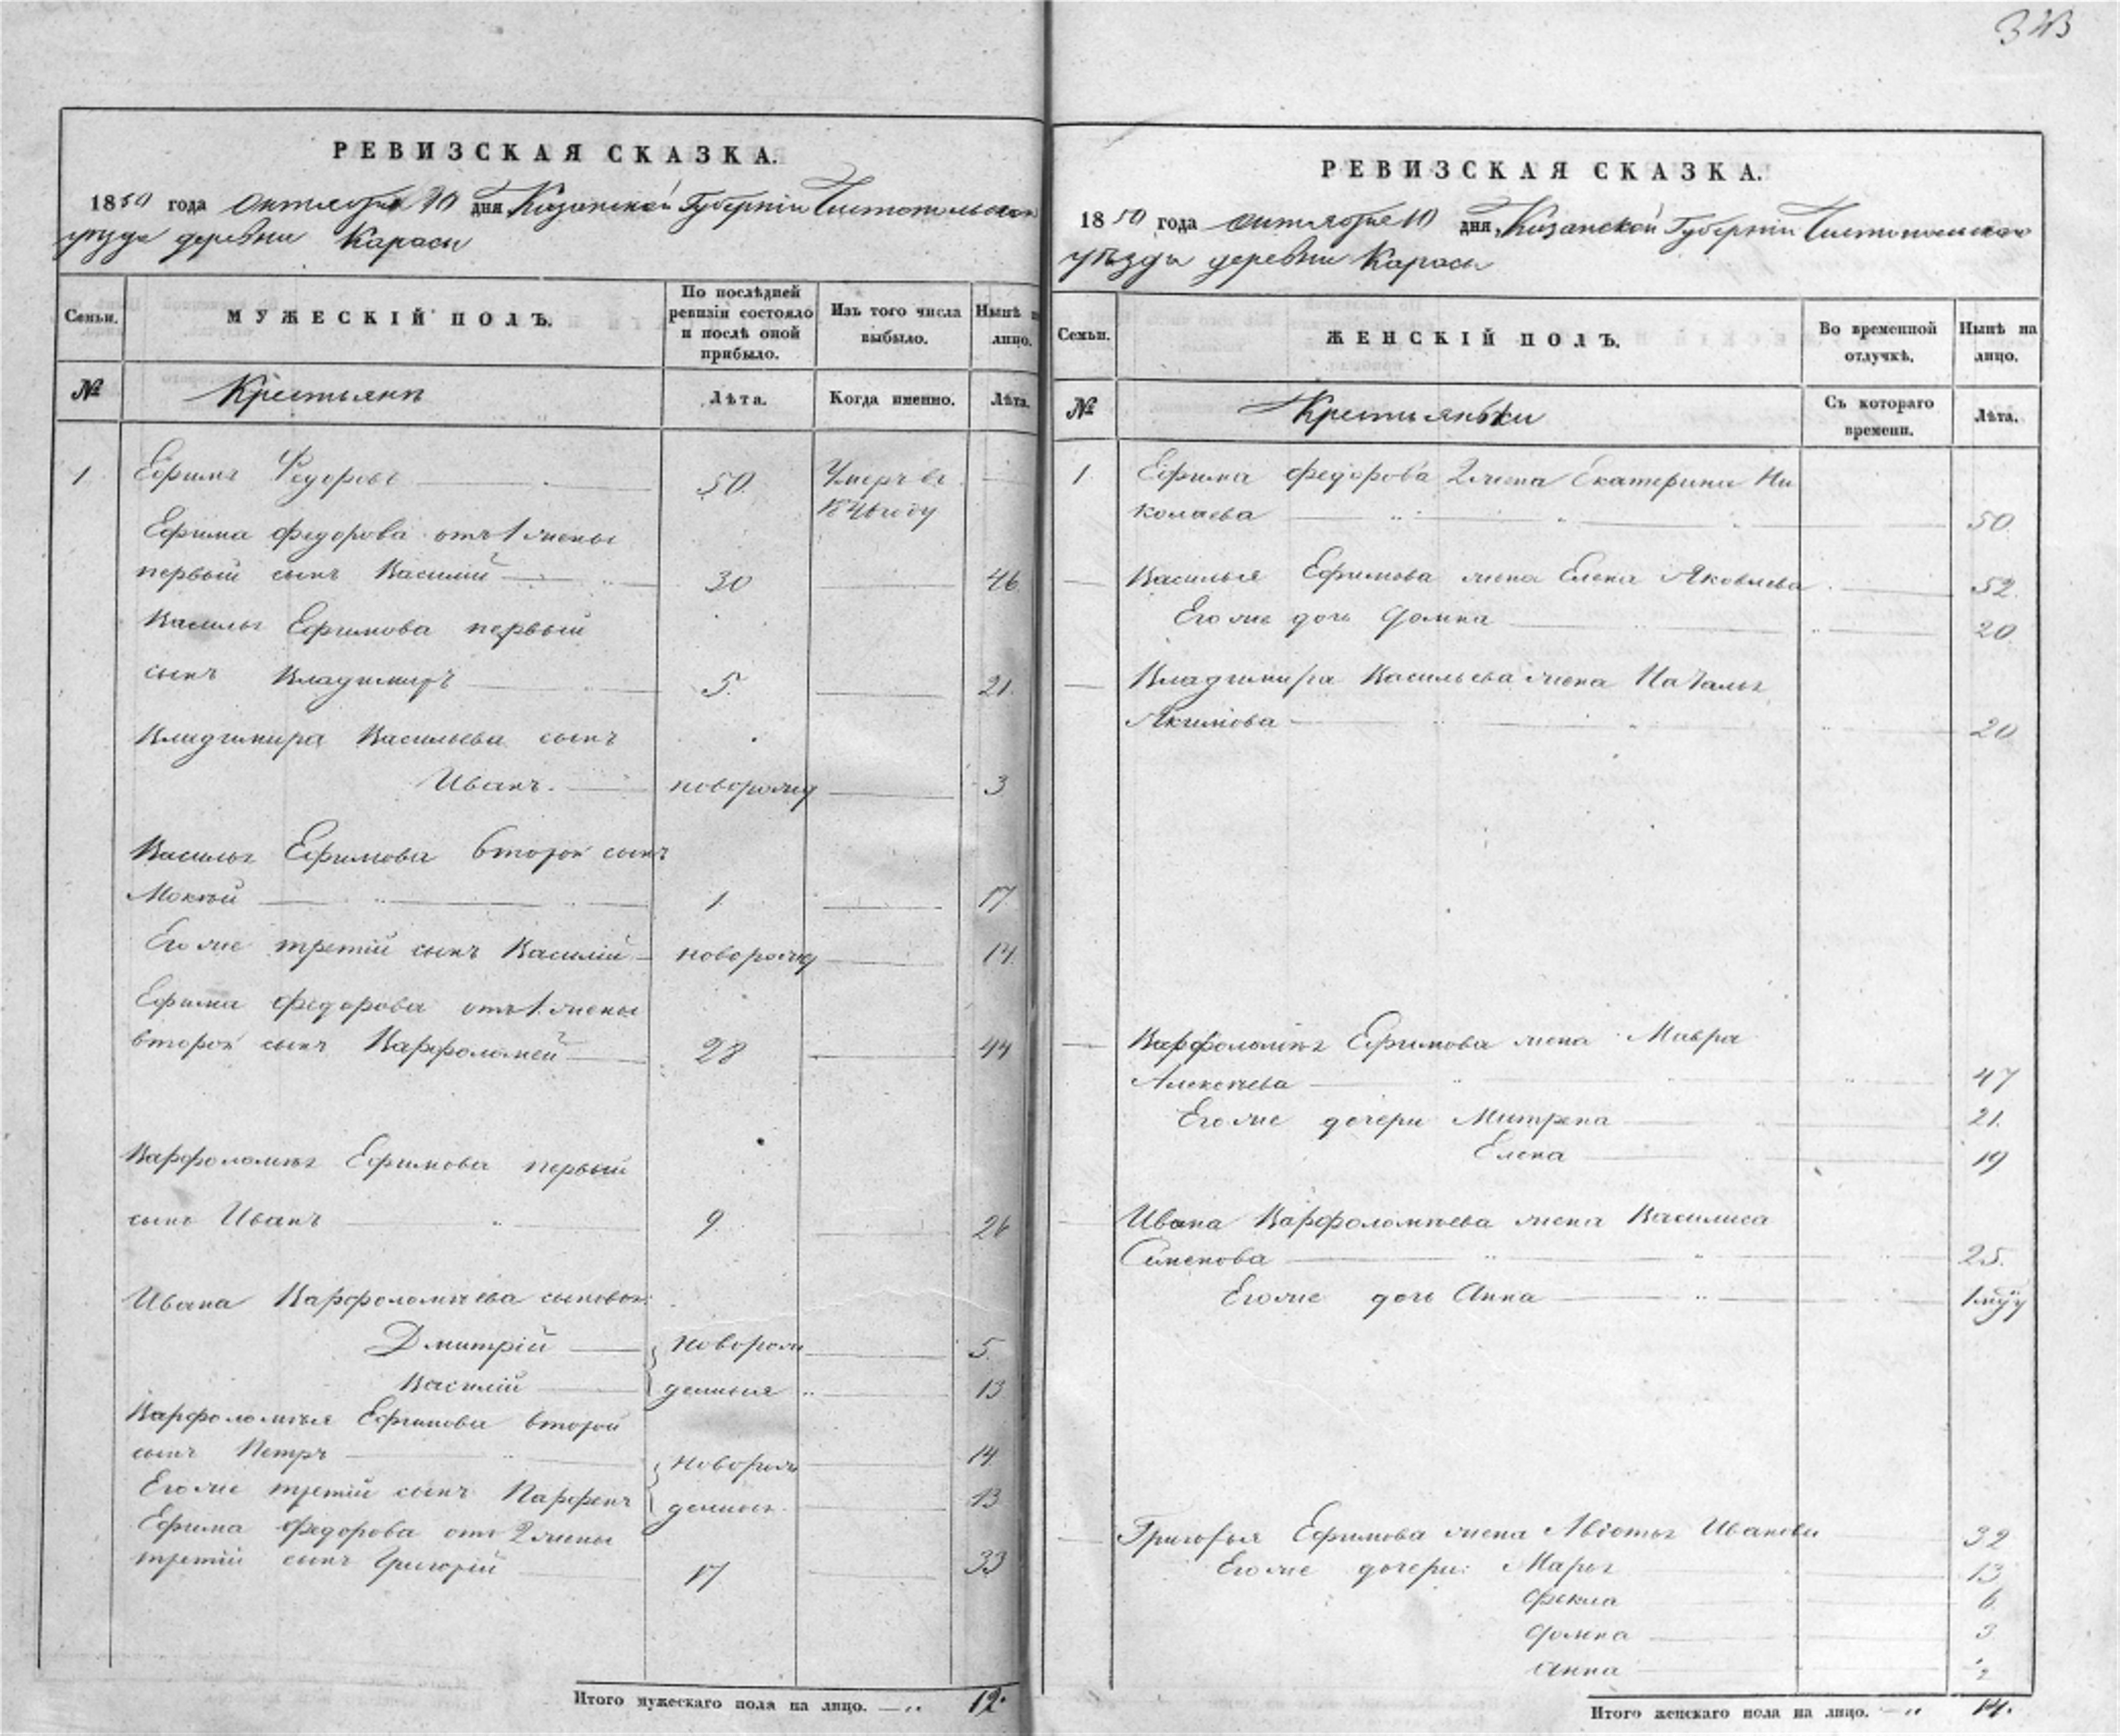 343
РЕВИЗСКАЯ СКАЗКА.
1850 года октября 10 дня Казанской Губерніи Чистопольскаго
уѣзда деревни Карасы
Семьи.
МУЖЕСКІЙ ПОЛЪ.
По послѣдней ревизіи состояло и послѣ оной прибыло.
Изъ того числа выбыло.
Нынѣ на лицо.
№
Крестьянъ
Лѣта.
Когда именно.
Лѣта.
1 Ефимъ Федоровъ 50 Умеръ въ
1846 году
Ефима Федорова отъ 1 жены
первый сынъ Василій 30 46
Василья Ефимова первый
сынъ Владимиръ 5. 21.
Владимира Васильева сынъ
Иванъ. новорожд 3
Василья Ефимова второй сынъ
Мокѣй 1 17
Его же третій сынъ Василій новорожд 14.
Ефима Федорова отъ 1. жены
второй сынъ Варфоломей 28 44
Варфоломея Ефимова первый
сынъ Иванъ 9. 26
Ивана Варфоломѣева сыновья:
Дмитрій новорож 5.
Василій денныя 13
Варфоломѣя Ефимова второй
сынъ Петръ новорож 14.
Его же третій сынъ Парфенъ денныя 13
Ефима Федорова отъ 2 жены
третій сынъ Григорій 17 33
Итого мужескаго пола на лицо. 12.
РЕВИЗСКАЯ СКАЗКА.
1850 года октября 10 дня, Казанской Губерніи Чистопольскаго
уѣзда деревни Карасы
Семьи.
ЖЕНСКІЙ ПОЛЪ.
Во временной отлучкѣ.
Нынѣ на лицо.
№
Крестьянки
Съ котораго времени.
Лѣта.
1 Ефима Федорова 2 жена Екатерина Ни
колаева 50.
Василья Ефимова жена Елена Яковлева 52.
Его же дочь Домна 20.
Владимира Васильева жена Наталья
Акимова 20
Варфоломѣя Ефимова жена Мавра
Алексѣева 47
Его же дочери Митрена 21.
Елена 19
Ивана Варфоломѣева жена Василиса
Семенова 25.
Его же дочь Анна
Григорья Ефимова жена Авдотья Иванова 32
Его же дочери: Марья 13
Фекла 6.
Домна 3
Анна ½
Итого женскаго пола на лицо. 14.